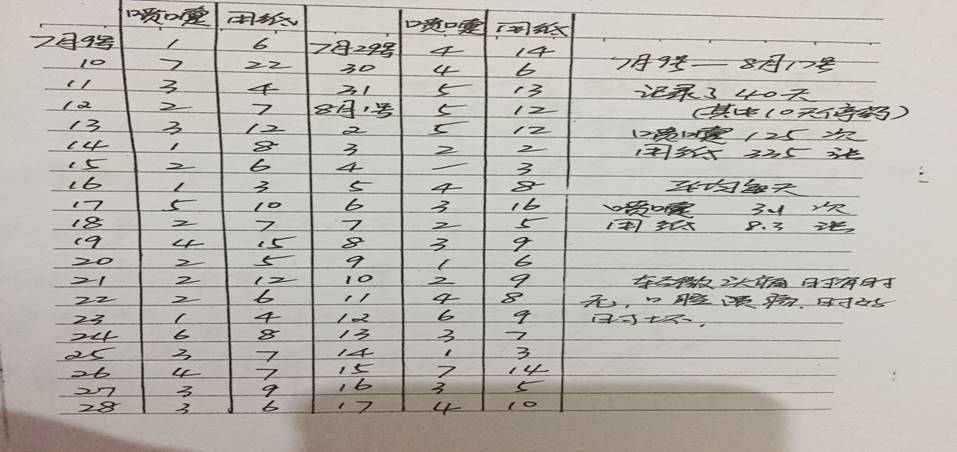 喷嚏 用纸 喷嚏 用纸
7月9号 1 6 7月29号 4 14
10 7 22 30 4 6 7月9号—8月17号
11 3 4 31 5 13 记录了40天
12 2 7 8月1号 5 12 (其中10天停药)
13 3 12 2 5 12 喷嚏 125 次
14 1 8 3 2 2 用纸 335 张
15 2 6 4 — 3
16 1 3 5 4 8 平均每天
17 5 10 6 3 16 喷嚏 3.1 次
18 2 7 7 2 5 用纸 8.3 张
19 4 15 8 3 9
20 2 5 9 1 6
21 2 12 10 2 9 轻微头痛时有时
22 2 6 11 4 8 无,口腔溃疡,时好
23 1 4 12 6 9 时坏,
24 6 8 13 3 7
25 3 7 14 1 3
26 4 7 15 7 14
27 3 9 16 3 5
28 3 6 17 4 10